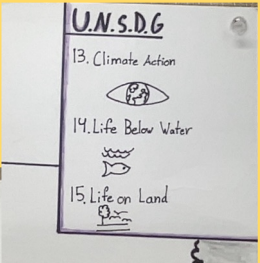 U.N.S.D.G
13. Climate Action
14. Life Below Water
15. Life on Land